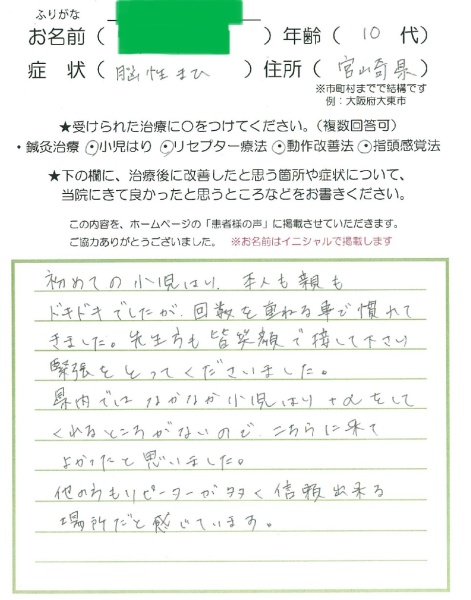 ふりがな
お名前（　　　）年齢（ 10 代）
症 状（脳性まひ）住所（宮崎県）
※市町村までで結構です
例：大阪府大東市
★受けられた治療に〇をつけてください。（複数回答可）
・鍼灸治療 ・小児はり ・リセプター療法 ・動作改善法 ・指頭感覚法
★下の欄に、治療後に改善したと思う箇所や症状について、
当院にきて良かったと思うところなどをお書きください。
この内容を、ホームページの「患者様の声」に掲載させていただきます。
ご協力ありがとうございました。 ※お名前はイニシャルで掲載します
初めての小児はり、本人も親も
ドキドキでしたが、回数を重ねる事で慣れて
きました。先生方も皆笑顔で接して下さり
緊張をとってくださいました。
県内ではなかなか小児はり+αをして
くれるところがないので、こちらに来て
よかったと思いました。
他の方もリピーターが多く信頼出来る
場所だと感じています。